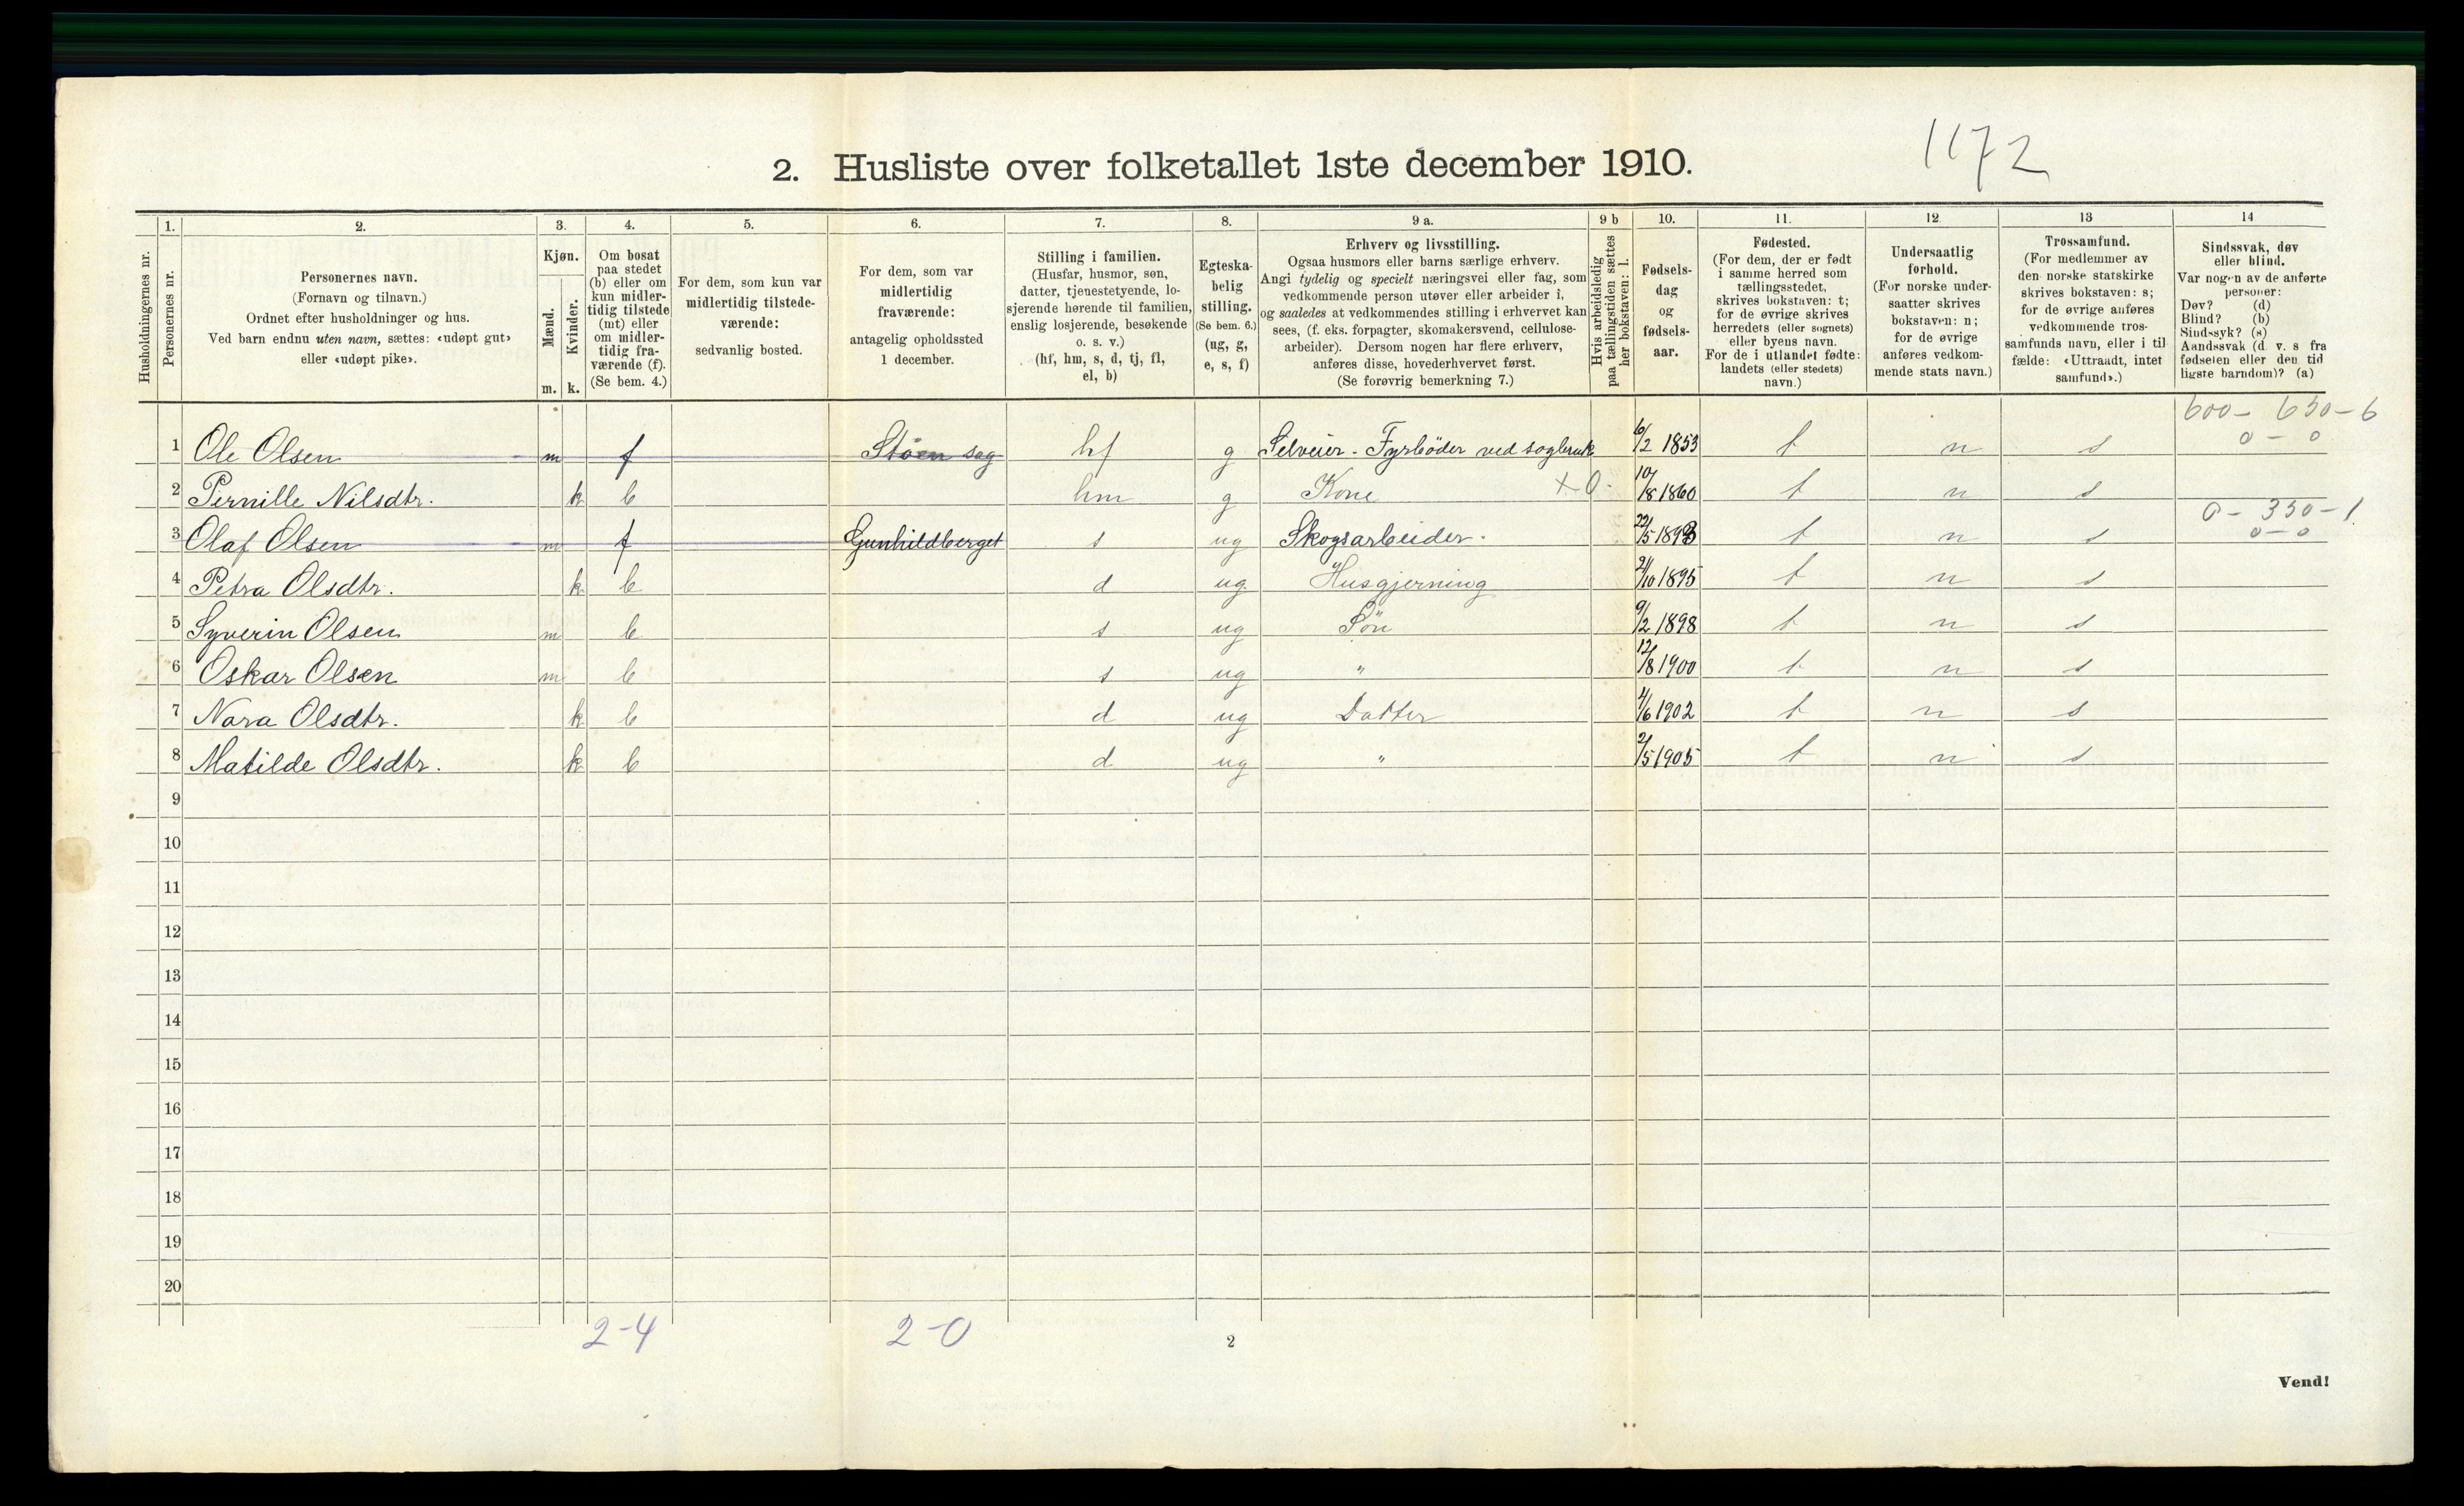 1172
2. Husliste over folketallet 1ste december 1910.
Husholdningernes nr.
1. Personernes nr.
2. Personernes navn. (Fornavn og tilnavn.) Ordnet efter husholdninger og hus. Ved barn endnu uten navn, sættes: «udøpt gut» eller «udøpt pike».
3. Kjøn. Mænd. m. Kvinder. k.
4. Om bosat paa stedet (b) eller om kun midlertidig tilstede (mt) eller om midlertidig fraværende (f). (Se bem. 4.)
5. For dem, som kun var midlertidig tilstedeværende: sedvanlig bosted.
6. For dem, som var midlertidig fraværende: antagelig opholdssted 1 december.
7. Stilling i familien. (Husfar, husmor, søn, datter, tjenestetyende, losjerende hørende til familien, enslig losjerende, besøkende o. s. v.) (hf, hm, s, d, tj, fl, el, b)
8. Egteskabelig stilling. (Se bem. 6.) (ug, g, e, s, f)
9 a. Erhverv og livsstilling. Ogsaa husmors eller barns særlige erhverv. Angi tydelig og specielt næringsvei eller fag, som vedkommende person utøver eller arbeider i, og saaledes at vedkommendes stilling i erhvervet kan sees, (f. eks. forpagter, skomakersvend, cellulosearbeider). Dersom nogen har flere erhverv, anføres disse, hovederhvervet først. (Se forøvrig bemerkning 7.)
9 b Hvis arbeidsledig paa tællingstiden sættes her bokstaven: l.
10. Fødselsdag og fødselsaar.
11. Fødested. (For dem, der er født i samme herred som tællingsstedet, skrives bokstaven: t; for de øvrige skrives herredets (eller sognets) eller byens navn. For de i utlandet fødte: landets (eller stedets) navn.)
12. Undersaatlig forhold. (For norske undersaatter skrives bokstaven: n; for de øvrige anføres vedkommende stats navn.)
13 Trossamfund. (For medlemmer av den norske statskirke skrives bokstaven: s; for de øvrige anføres vedkommende trossamfunds navn, eller i tilfælde: «Uttraadt, intet samfund».)
14 Sindssvak, døv eller blind. Var nogen av de anførte personer: Døv? (d) Blind? (b) Sindssyk? (s) Aandssvak (d. v. s. fra fødselen eller den tidligste barndom)? (a)
600 - 650 - 6
0 - 0
1 Ole Olsen m f Stöen sag hf g Selveier - Fyrböder ved sagbruk 6/2 1853 t n s
2 Pernille Nilsdtr. k b hm g Kone x 0 - 10/8 1860 t n s
0 - 350 - 1
0 - 0
3 Olaf Olsen m f Gunhildberget s ug Skogsarbeider. 22/5 1893 t n s
4 Petra Olsdtr. k b d ug Husgjerning 21/10 1895 t n s
5 Syverin Olsen m b s ug Sön 9/2 1898 t n s
6 Oskar Olsen m b s ug " 12/8 1900 t n s
7 Nora Olsdtr. k b d ug Datter 4/6 1902 t n s
8 Matilde Olsdtr. k b d ug " 2/5 1905 t n s
9
10
11
12
13
14
15
16
17
18
19
20
2-4 2-0
2
Vend!